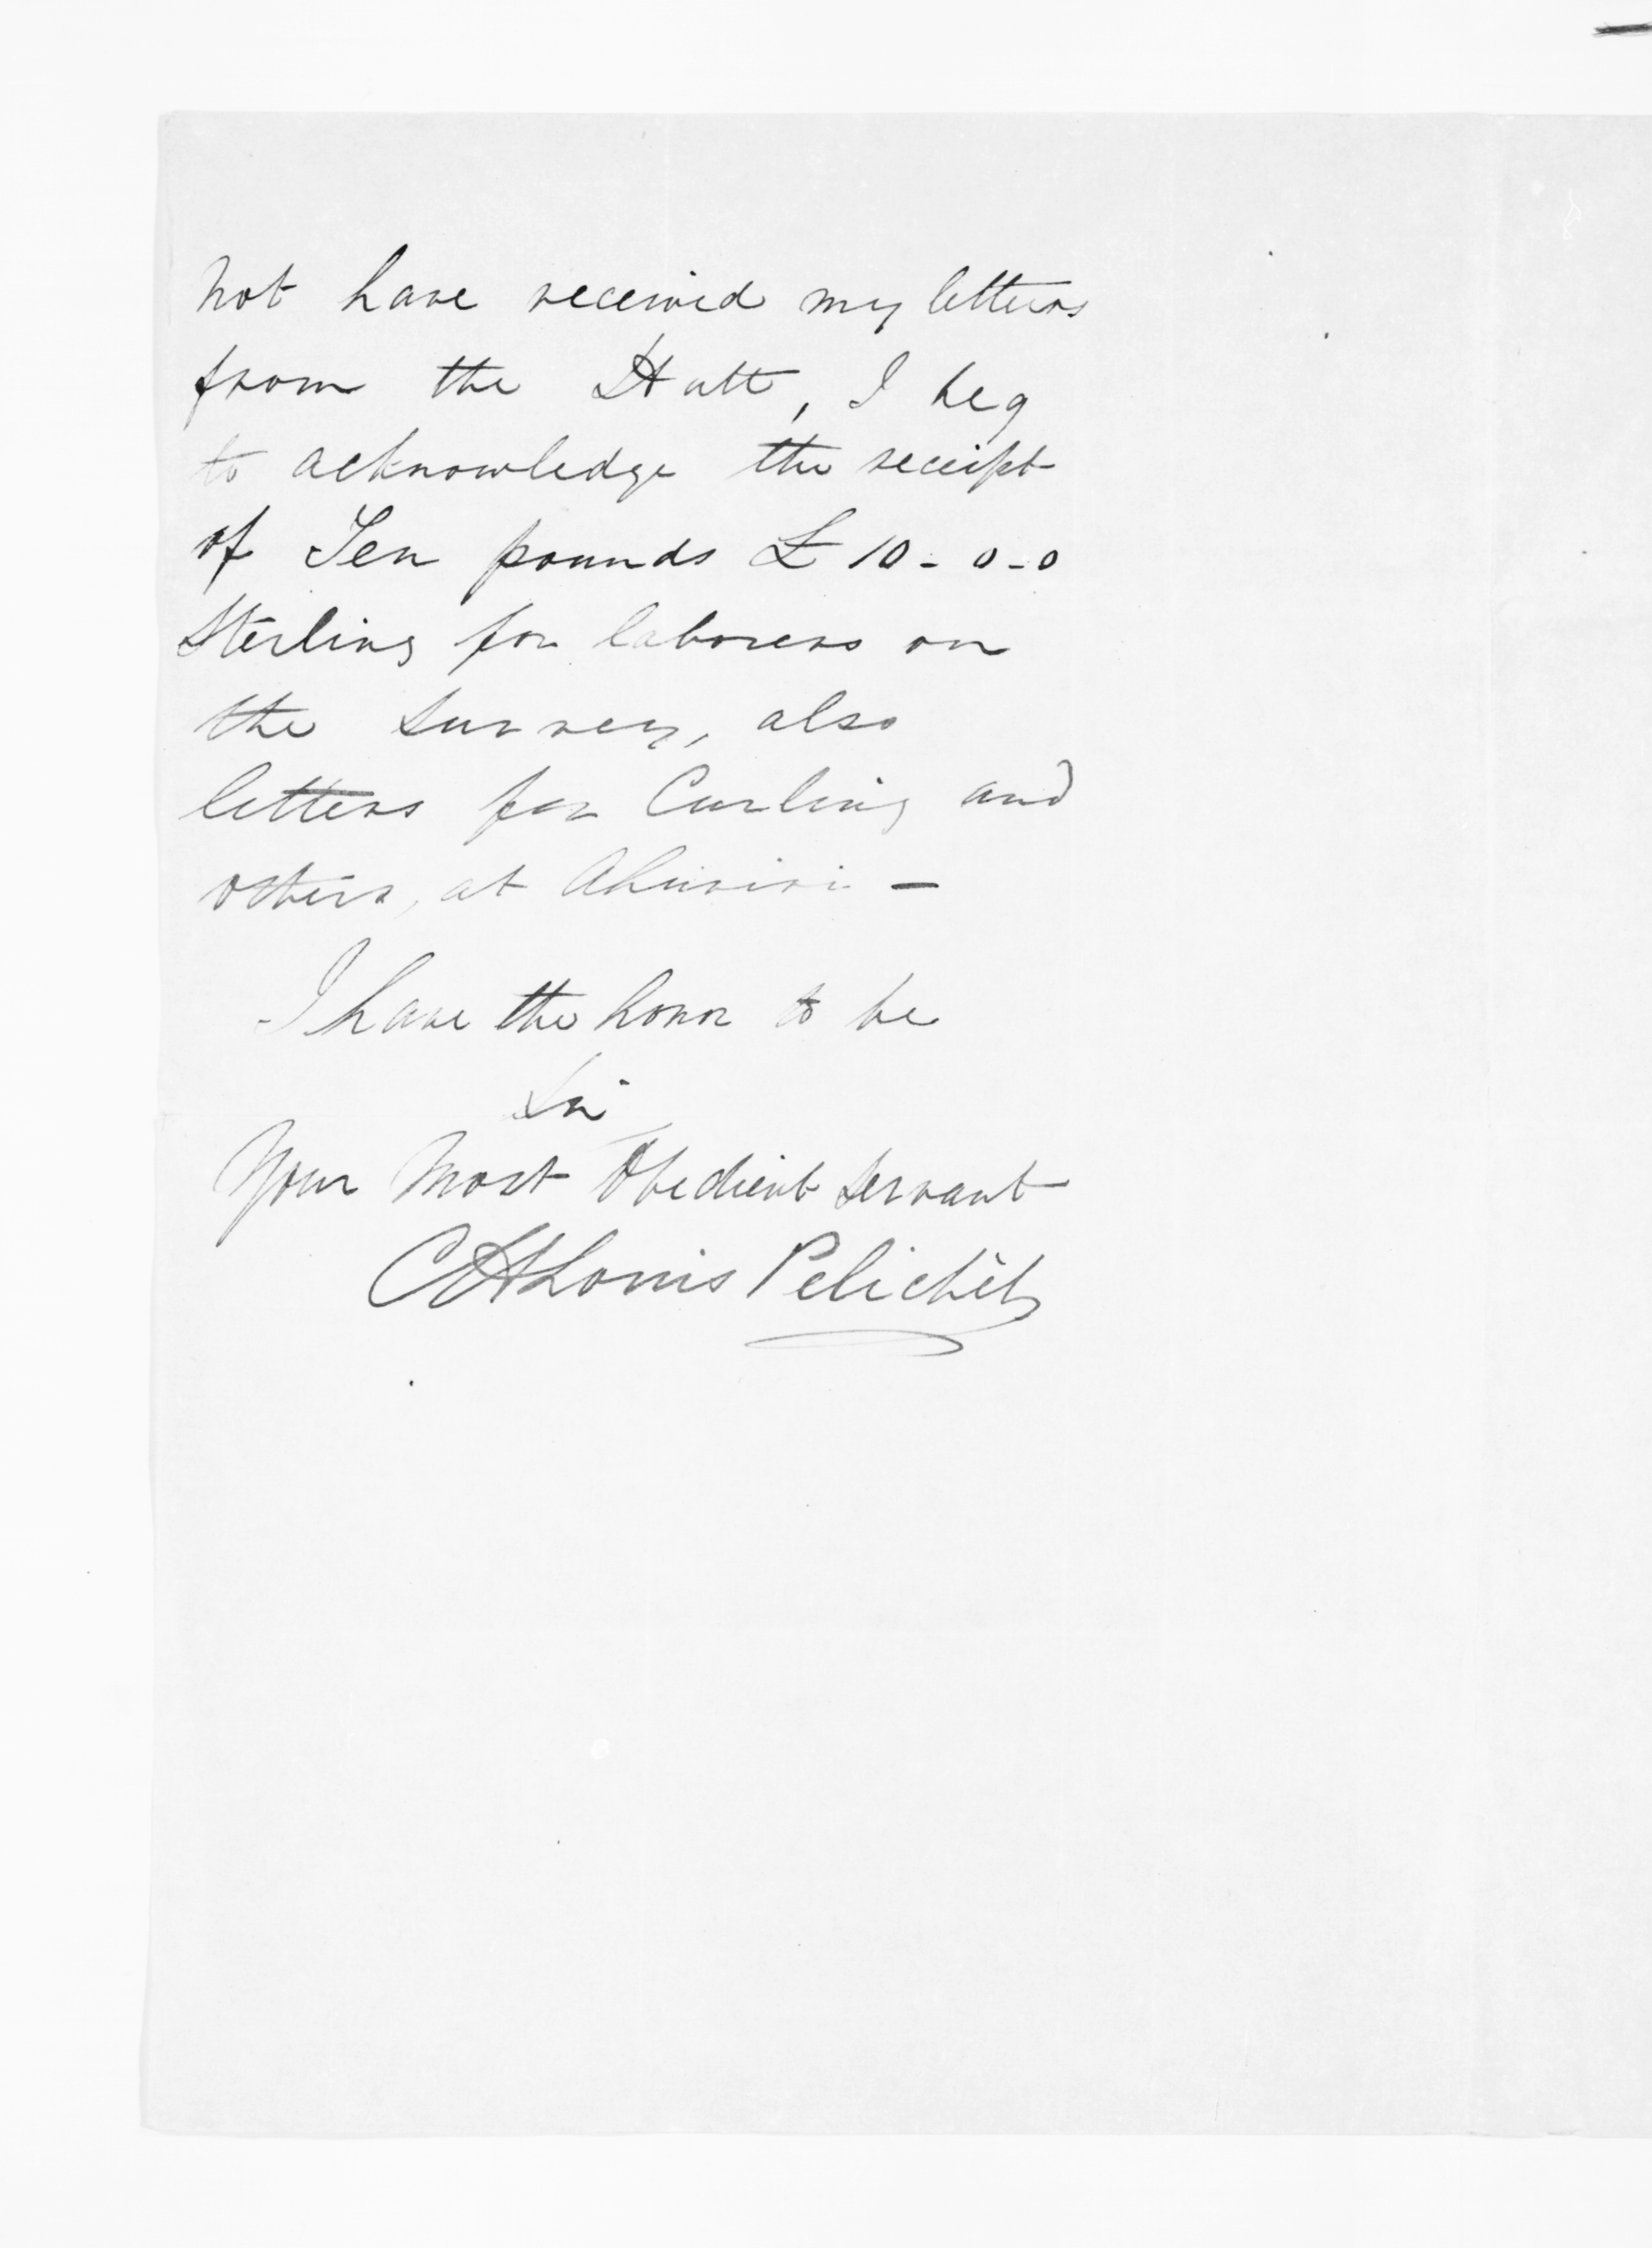 not have received my letters
from the Hutt, I beg
to acknowledge the receipt
of Ten pounds £ 10 - 0 - 0
Sterling for laborers on
the survey, also
letters for Curling and
others, at Ahuriri -
I have the honor to be
Sir
Your Most Obedient Servant
C H Louis Pelichet